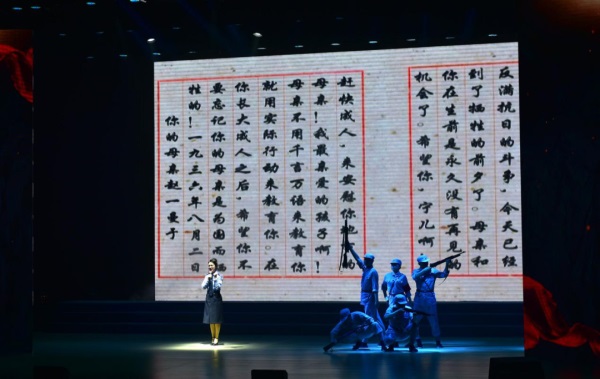 反满抗日的斗争，今天已经
到了牺牲的前夕了。母亲和
你在生前是永久没有再见的
机会了。希望你，宁儿啊
赶快成人，来安慰你地下的
母亲！我最亲爱的孩子啊！
母亲不用千言万语来教育你
就用实际行动来教育你。在
你长大成人之后，希望你不
要忘记你的母亲是为国而牺
牲的！一九三六年八月二日
你的母亲赵一曼于